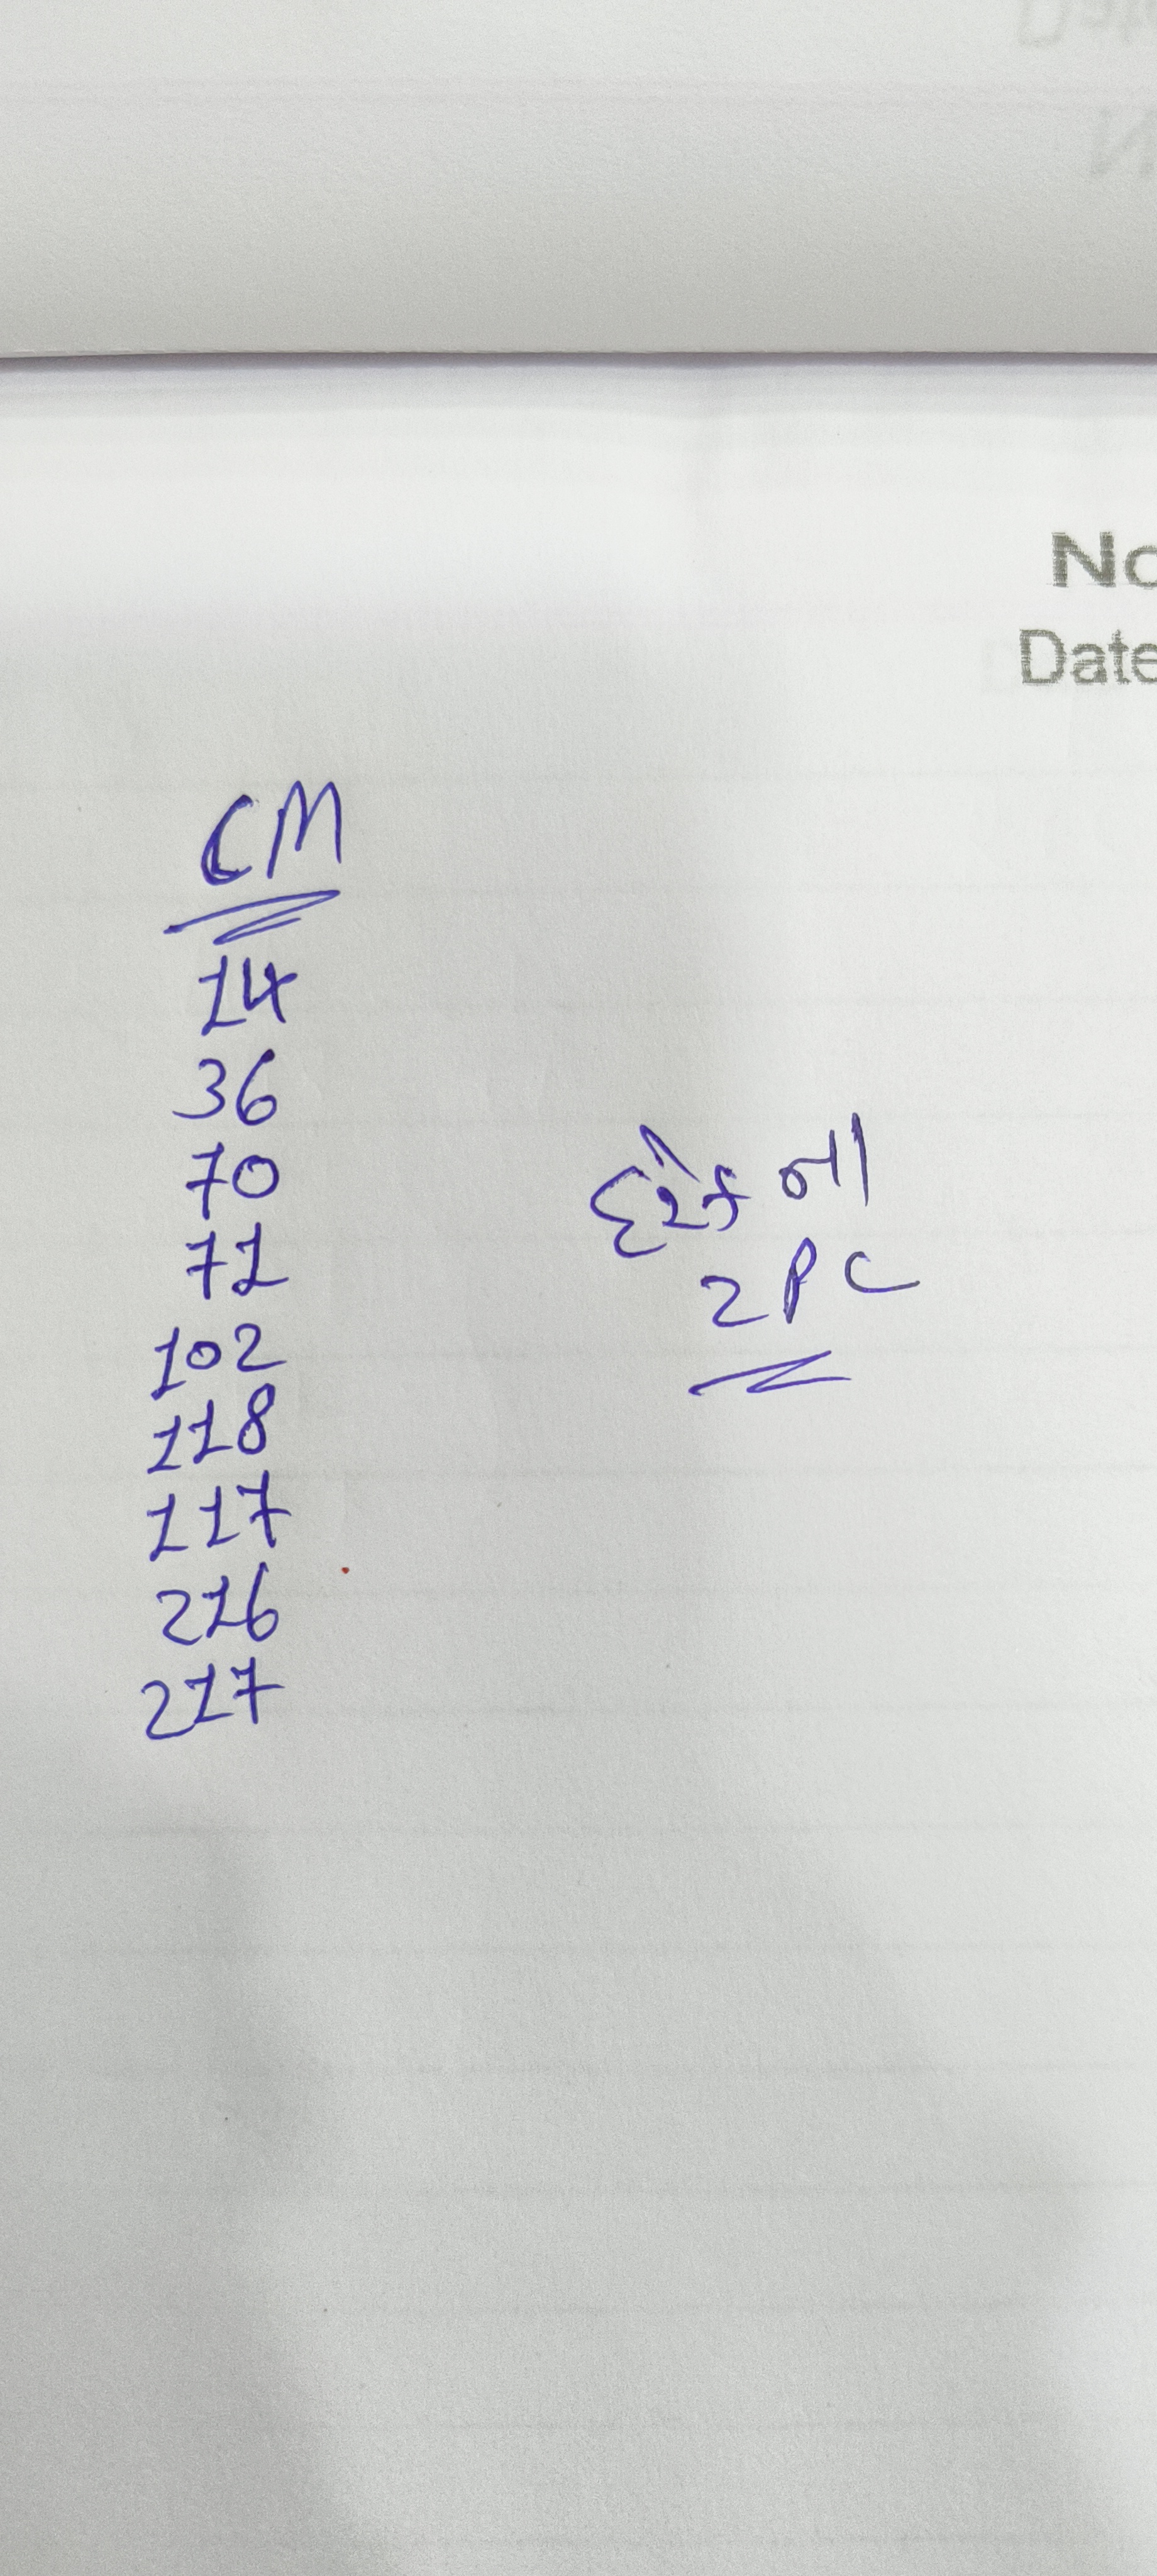 No
Date
CM
14
36
70
71
102
118
117
216
217
દરેક ના
2 PC